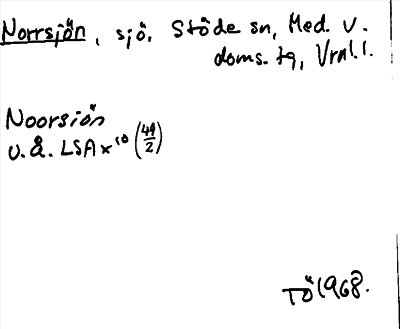 Norrsjön, sjö, Stöde sn, Med. v.
doms. tg, Vrnl. l.
Noorsiön
u.å. LSA x¹⁰ (49/2)
TÖ 1968.